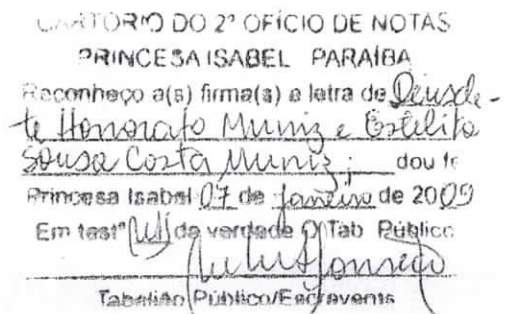 CARTORIO DO 2º OFÍCIO DE NOTAS
PRINCESA ISABEL PARAÍBA
Reconheço a(s) firma(s) e letra de Deusde-
te Honorato Muniz e Estelita
Sousa Costa Muniz; dou fé
Princesa Isabel 07 de janeiro de 2009
Em testº da verdade O Tab Público
Tabelião Público/Escrevente